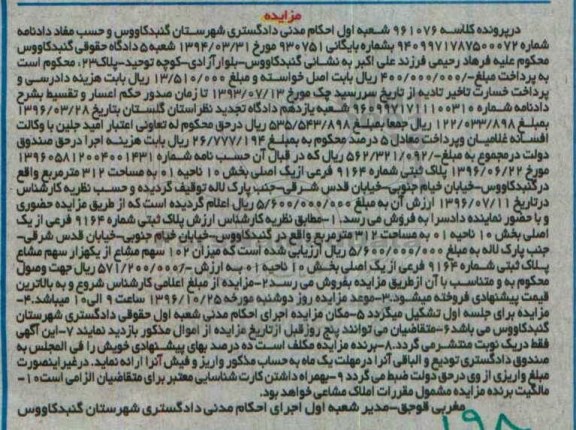 مزایده
درپرونده کلاسه ۹۶۱۰۷۶ شعبه اول احکام مدنی دادگستری شهرستان گنبدکاووس و حسب مفاد دادنامه
شماره ۹۴۰۹۹۷۱۷۸۷۵۰۰۰۷۲ بشماره بایگانی ۹۳۰۷۵۱ مورخ ۱۳۹۴/۰۳/۳۱ شعبه ۵ دادگاه حقوقی گنبدکاووس
محکوم علیه فرهاد رحیمی فرزند علی اکبر به نشانی گنبدکاووس-بلوارآزادی-کوچه توحید-پلاک۲۳، محکوم است
به پرداخت مبلغ-/۴۰۰/۰۰۰/۰۰۰ ریال بابت اصل خواسته و مبلغ ۱۳/۵۱۰/۰۰۰ ریال بابت هزینه دادرسی و
پرداخت خسارت تاخیر تادیه از تاریخ سررسید چک مورخ ۱۳۹۳/۰۷/۱۳ تا زمان صدور حکم اعسار و تقسیط بشرح
دادنامه شماره ۹۶۰۹۹۷۱۷۱۱۱۰۰۳۱۰ شعبه یازدهم دادگاه تجدید نظراستان گلستان بتاریخ ۱۳۹۶/۰۳/۲۸
بمبلغ ۱۲۲/۰۳۳/۸۹۸ ریال جمعا بمبلغ ۵۳۵/۵۴۳/۸۹۸ ریال درحق محکوم له تعاونی اعتبار امید جلین با وکالت
افسانه غلامیان وپرداخت معادل ۵ درصد محکوم به بمبلغ ۲۶/۷۷۷/۱۹۴ ریال بابت هزینه اجرا درحق صندوق
دولت درمجموع به مبلغ-/۵۶۲/۳۲۱/۰۹۲ ریال که در قبال آن حسب نامه شماره ۱۳۹۶۰۵۸۱۲۰۰۴۰۰۱۴۳۱
مورخ ۱۳۹۶/۰۶/۲۲ پلاک ثبتی شماره ۹۱۶۴ فرعی ازیک اصلی بخش ۱۰ ناحیه ۰۱ به مساحت ۳۱۲ مترمربع واقع
درگنبدکاووس-خیابان خیام جنوبی-خیابان قدس شرقی-جنب پارک لاله توقیف گردیده و حسب نظریه کارشناس
درتاریخ ۱۳۹۶/۰۷/۱۱ ارزش آن به مبلغ ۵/۶۰۰/۰۰۰/۰۰۰ ریال اعلام گردیده است که از طریق مزایده حضوری
و با حضور نماینده دادسرا به فروش می رسد. ۱-مطابق نظریه کارشناس ارزش پلاک ثبتی شماره ۹۱۶۴ فرعی از یک
اصلی بخش ۱۰ ناحیه ۰۱ به مساحت ۳۱۲ مترمربع واقع در گنبدکاووس-خیابان خیام جنوبی-خیابان قدس شرقی-
جنب پارک لاله به مبلغ ۵/۶۰۰/۰۰۰/۰۰۰ ریال ارزیابی شده است که میزان ۱۰۲ سهم مشاع از یکهزار سهم مشاع
پلاک ثبتی شماره ۹۱۶۴ فرعی از یک اصلی بخش ۱۰ ناحیه ۰۱ به ارزش -/۵۷۱/۲۰۰/۰۰۰ ریال جهت وصول
محکوم به و متناسب با آن ازطریق مزایده بفروش می رسد ۲-مزایده از مبلغ اعلامی کارشناس شروع و به بالاترین
قیمت پیشنهادی فروخته میشود.۳-موعد مزایده روز دوشنبه مورخه ۱۳۹۶/۱۰/۲۵ ساعت ۹ الی ۱۰ میباشد.۴-
مزایده برای جلسه اول تشکیل میگردد ۵-مکان مزایده اجرای احکام مدنی شعبه اول حقوقی دادگستری شهرستان
گنبدکاووس می باشد ۶-متقاضیان می توانند پنج روزقبل ازتاریخ مزایده از اموال مذکور بازدید نمایند ۷-این آگهی
فقط دریک نوبت منتشر می گردد.۸-برنده مزایده مکلف است ده درصد بهای پیشنهادی خویش را فی المجلس به
صندوق دادگستری تودیع و الباقی آنرا درمهلت یک ماه به حساب مذکور واریز و فیش آنرا ارائه نماید. درغیراینصورت
مبلغ واریزی از وی درحق دولت ضبط می گردد ۹-بهمراه داشتن کارت شناسایی معتبر برای متقاضیان الزامی است۱۰-
مالکیت برنده مزایده مشمول مقررات املاک مشاعی خواهد بود.
مغربی قوجق-مدیر شعبه اول اجرای احکام مدنی دادگستری شهرستان گنبدکاووس
۱۹۸